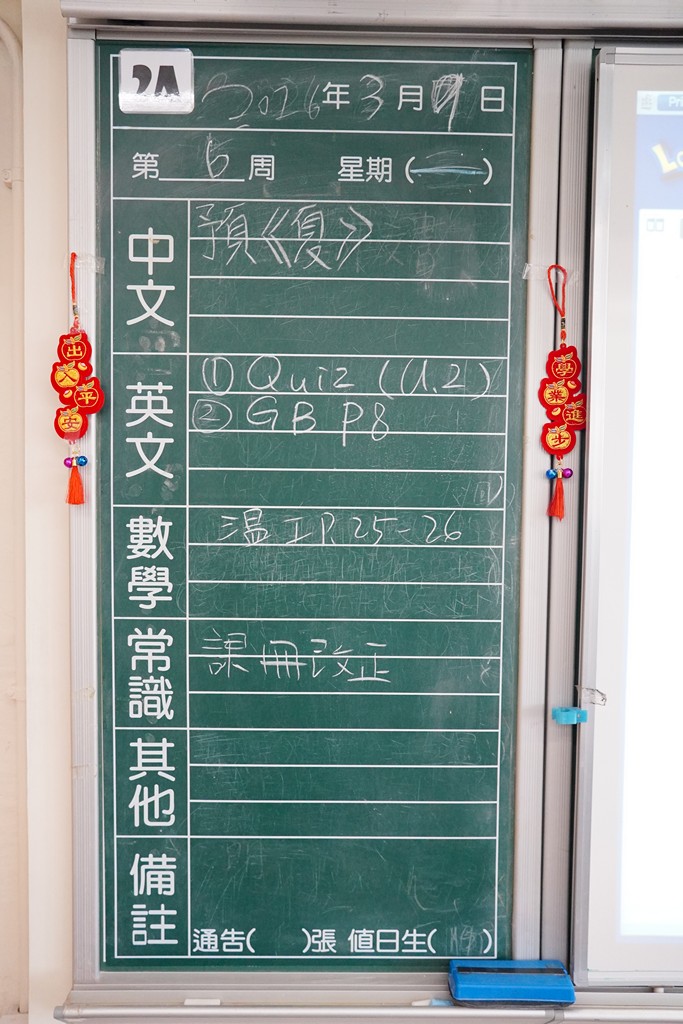 2A 2026年3月9日
第6周 星期(一)
中文 預《復》
英文 ① Quiz (U.2)
② GB P8
數學 温工P.25-26
常識 課冊改正
其他
備註
通告( )張 值日生( )
出入平安
學業進步